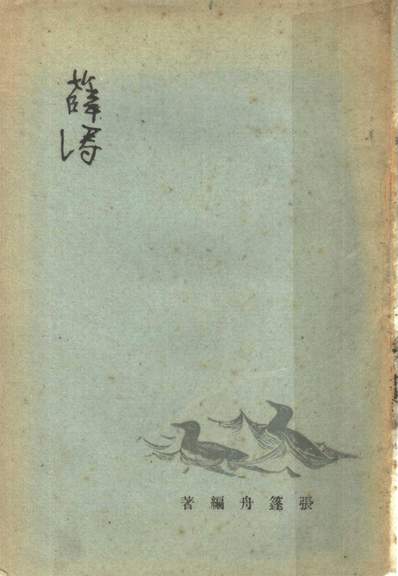 薛涛
張篷舟編著